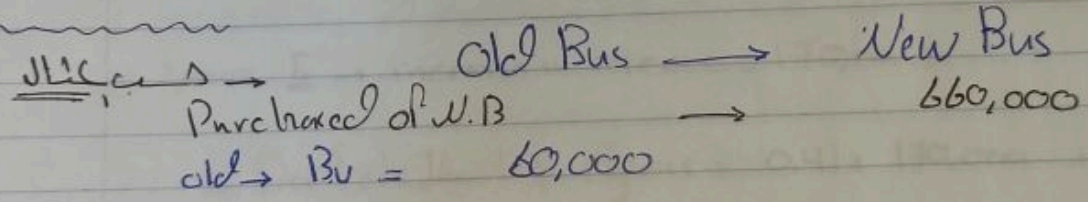 Old Bus → New Bus
Purchased of N.B → 660,000
old → Bv = 60,000